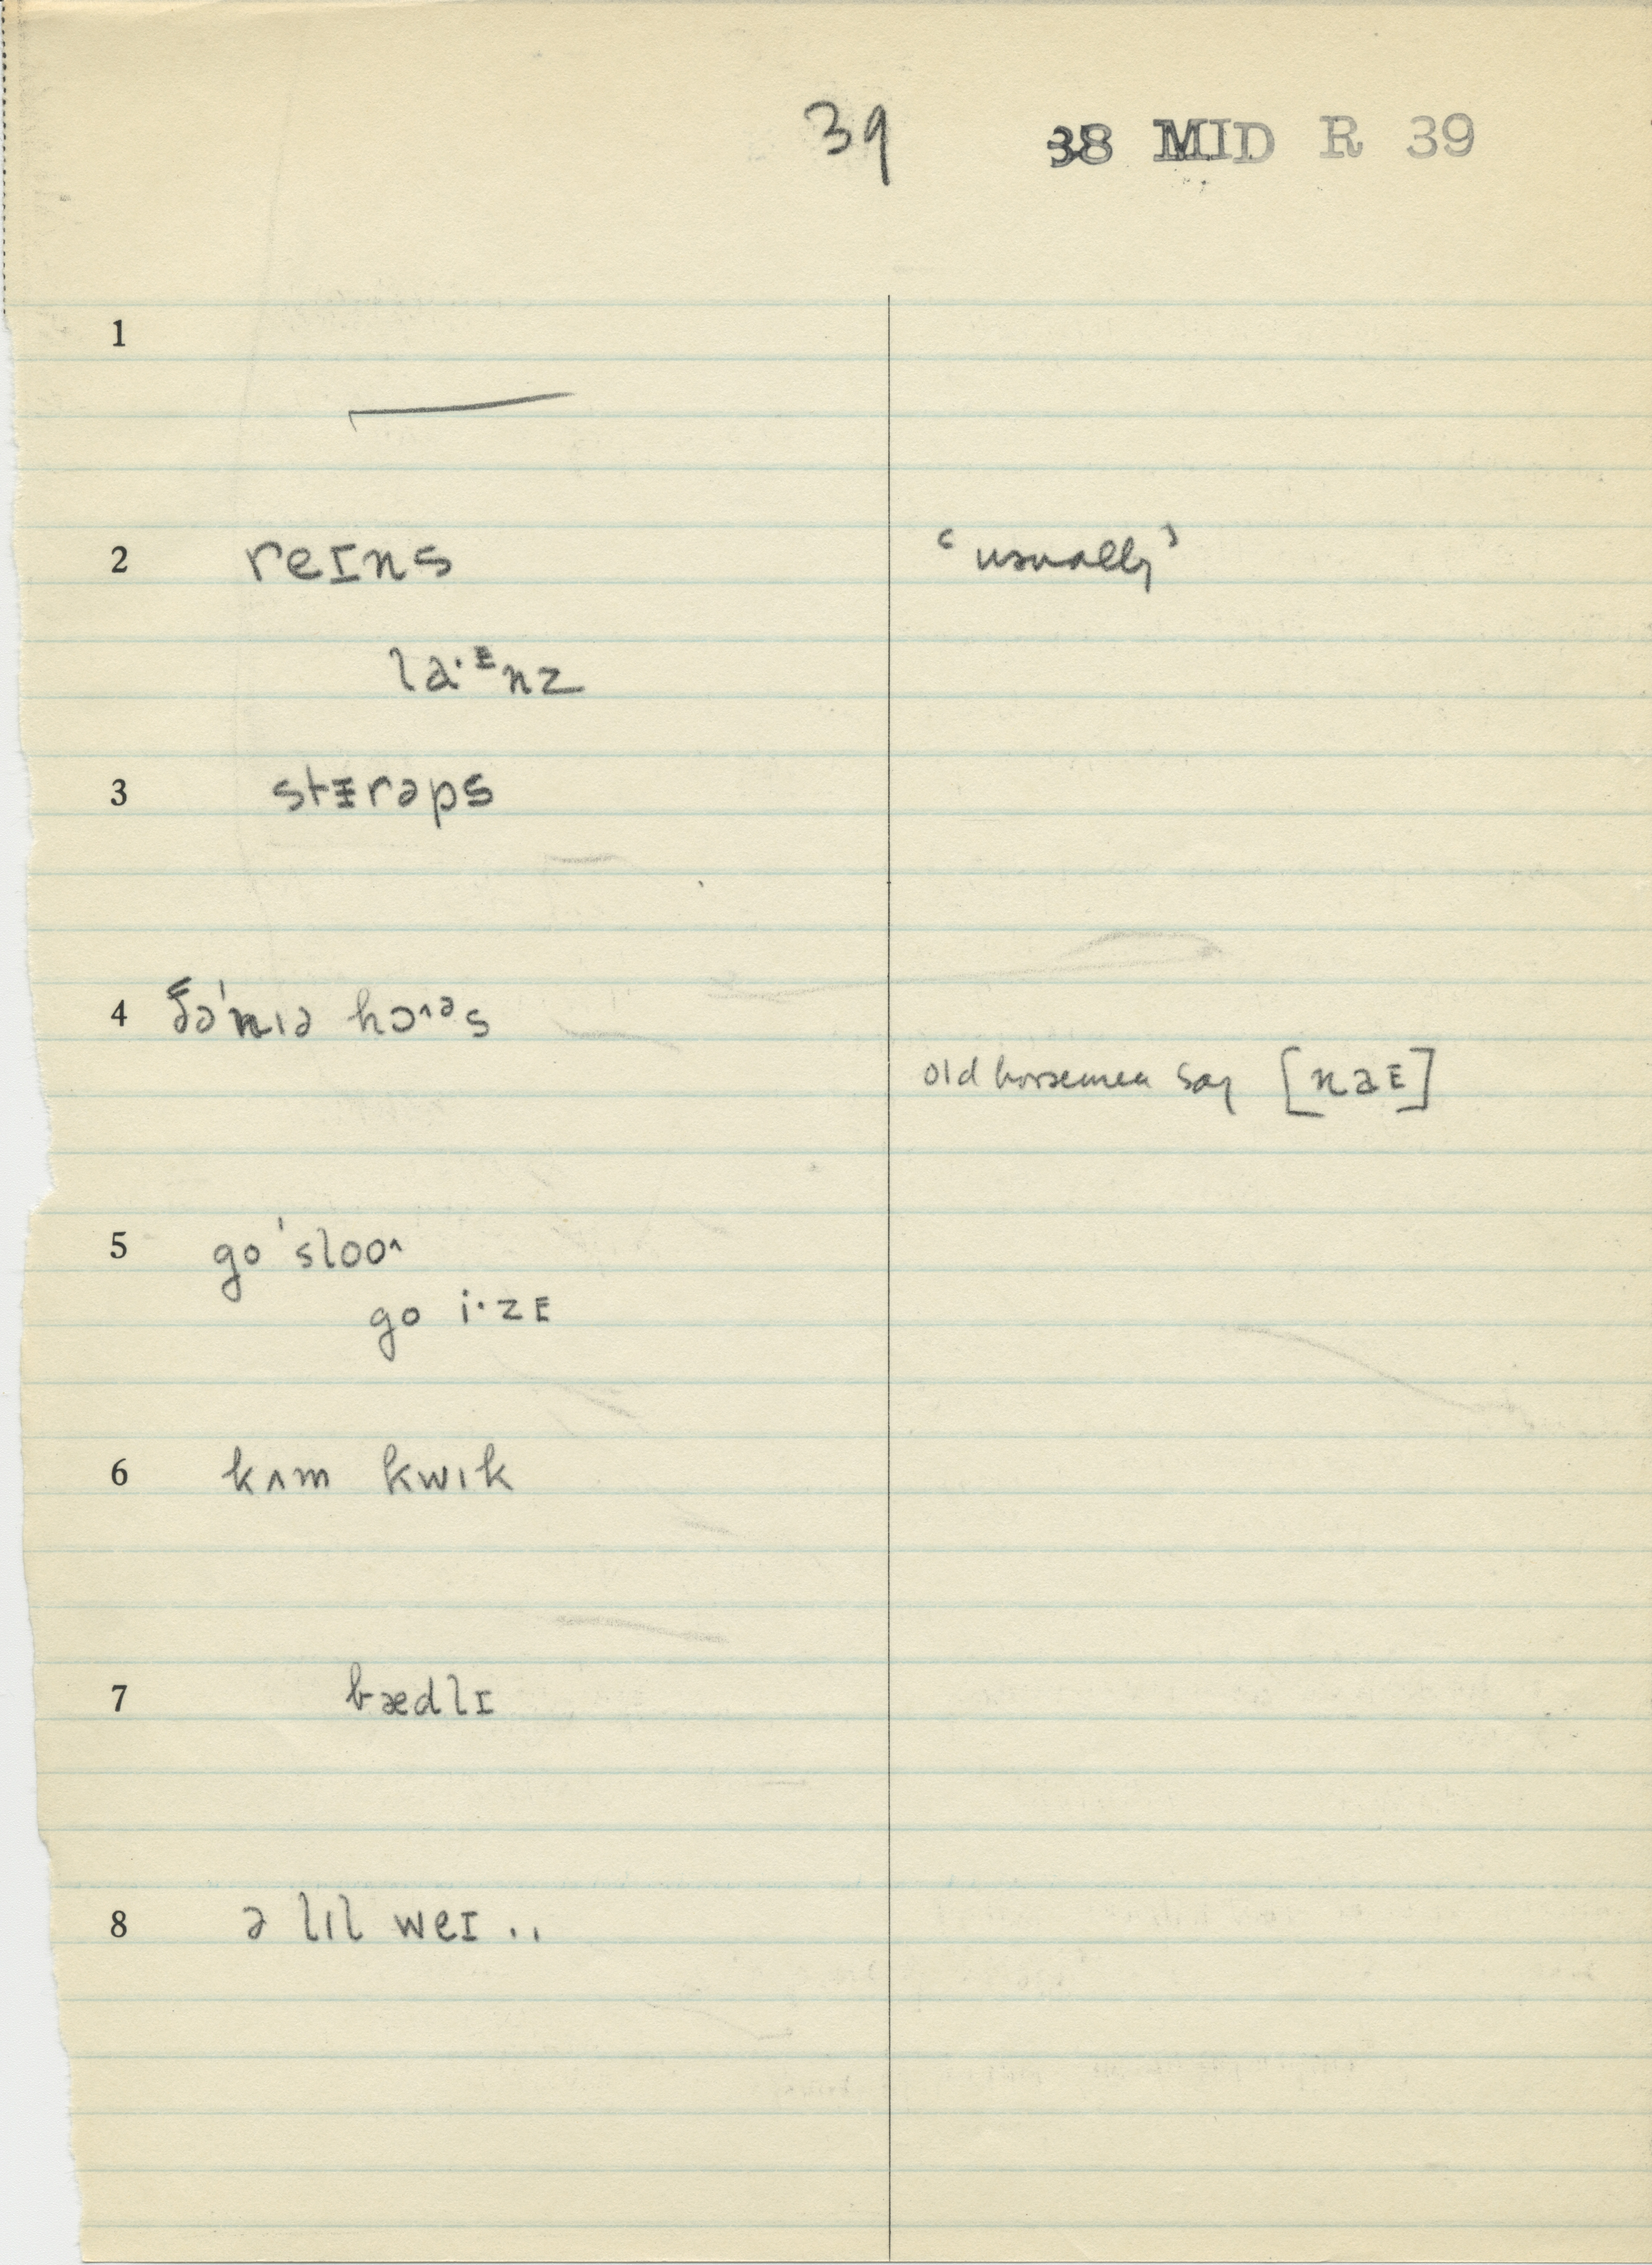 39 38 MID R 39
1
2 reɪns ‘usually’
la·ᴱnz
3 stᵻrəps
4 hɔ˄ᵊs
old horsemen say [naE]
5 go 'sloo˄
go i·zE
6 kʌm kwɪk
7 bædlɪ
8 ə lɪl weɪ ..